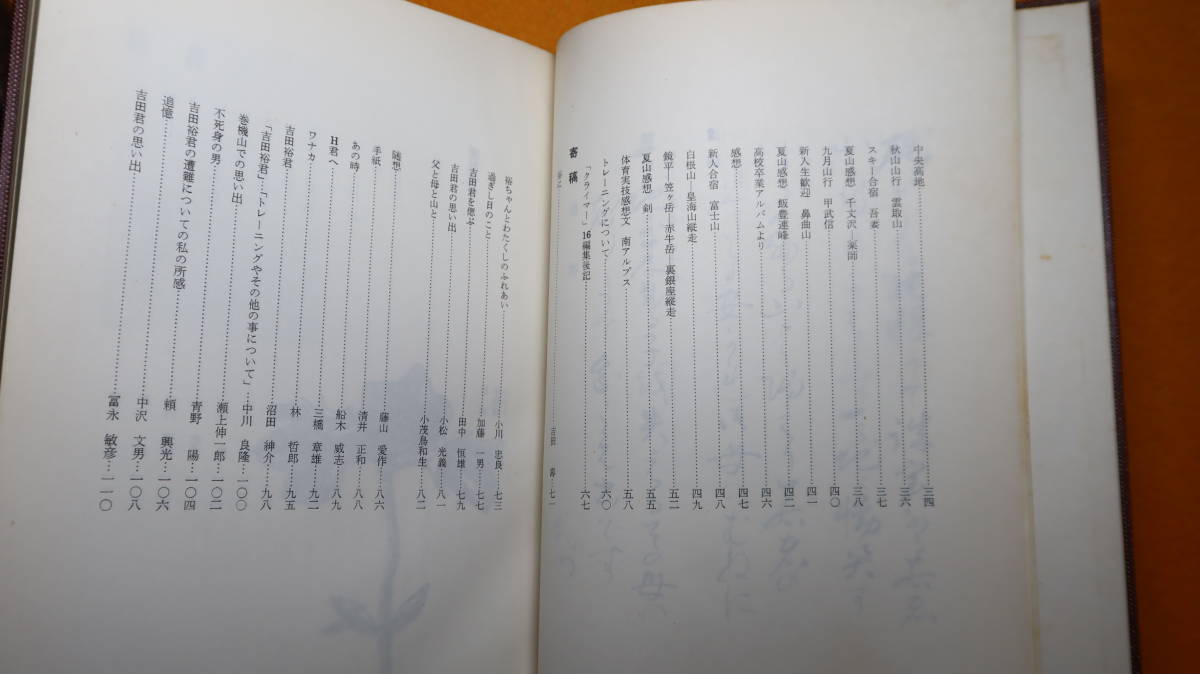 中央高地……三四
秋山山行 雲取山……三六
スキー合宿 吾妻……三七
夏山感想 千丈沢―薬師……三八
九月山行 甲武信……四〇
新人生歓迎 鼻曲山……四一
夏山感想 飯豊連峰……四二
高校卒業アルバムより……四六
感想……四七
新人合宿 富士山……四八
白根山―皇海山縦走……四九
鏡平―笠ヶ岳―赤牛岳―裏銀座縦走……五二
夏山感想 剣……五五
体育実技感想文 南アルプス……五八
トレーニングについて……六〇
「クライマー」16編集後記……六七
寄稿
吉田 七一
裕ちゃんとわたくしのふれあい……小川 忠良…七三
過ぎし日のこと……加藤 一男…七七
吉田君を偲ぶ……田中 恒雄…七九
吉田君の思い出……小松 光義…八一
父と母と山と……小茂鳥和生…八二
随想……藤山 愛作…八六
手紙……清井 正和…八八
あの時……船木 威志…八九
H君へ……三橋 章雄…九二
ワナカ……林 哲郎…九五
吉田裕君……沼田 紳介…九八
「吉田裕君」…「トレーニングやその他の事について」…中川 良隆…一〇〇
巻機山での思い出……瀬上伸一郎…一〇二
不死身の男……青野 陽…一〇四
吉田裕君の遭難についての私の所感……頼 興光…一〇六
追憶……中沢 文男…一〇八
吉田君の思い出……冨永 敏彦…一一〇